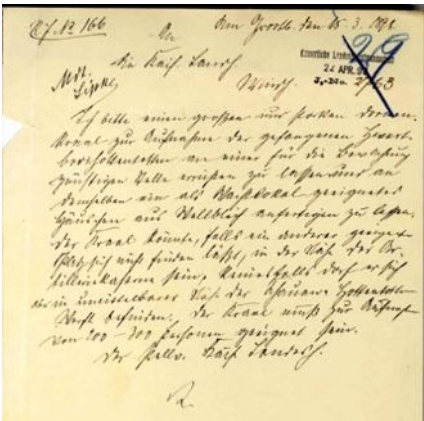 № 166
den 15. 3. 1898
An
die Kais. Landsch
Windh.
22 APR. 98
J.-No.
Ich bitte einen großen und starken Dornen-
kraal zur Aufnahme der gefangenen Zwart-
booihottentotten an einer für die Bewachung
günstigen Stelle errichten zu lassen und an
demselben ein als Wachtlokal geeignetes
Häuschen aus Wellblech anfertigen zu lassen.
Der Kraal könnte, falls ein anderer geeigneter
Platz sich nicht finden läßt, in der Näh. der Ar-
tilleriekaserne sein, keinesfalls darf er sich
aber in unmittelbarer Näh. der Hottentotten-
Werft befinden. Der Kraal muß zur Aufnahme
von 200-300 Personen geeignet sein.
Der stellv. Kais. Landesh.